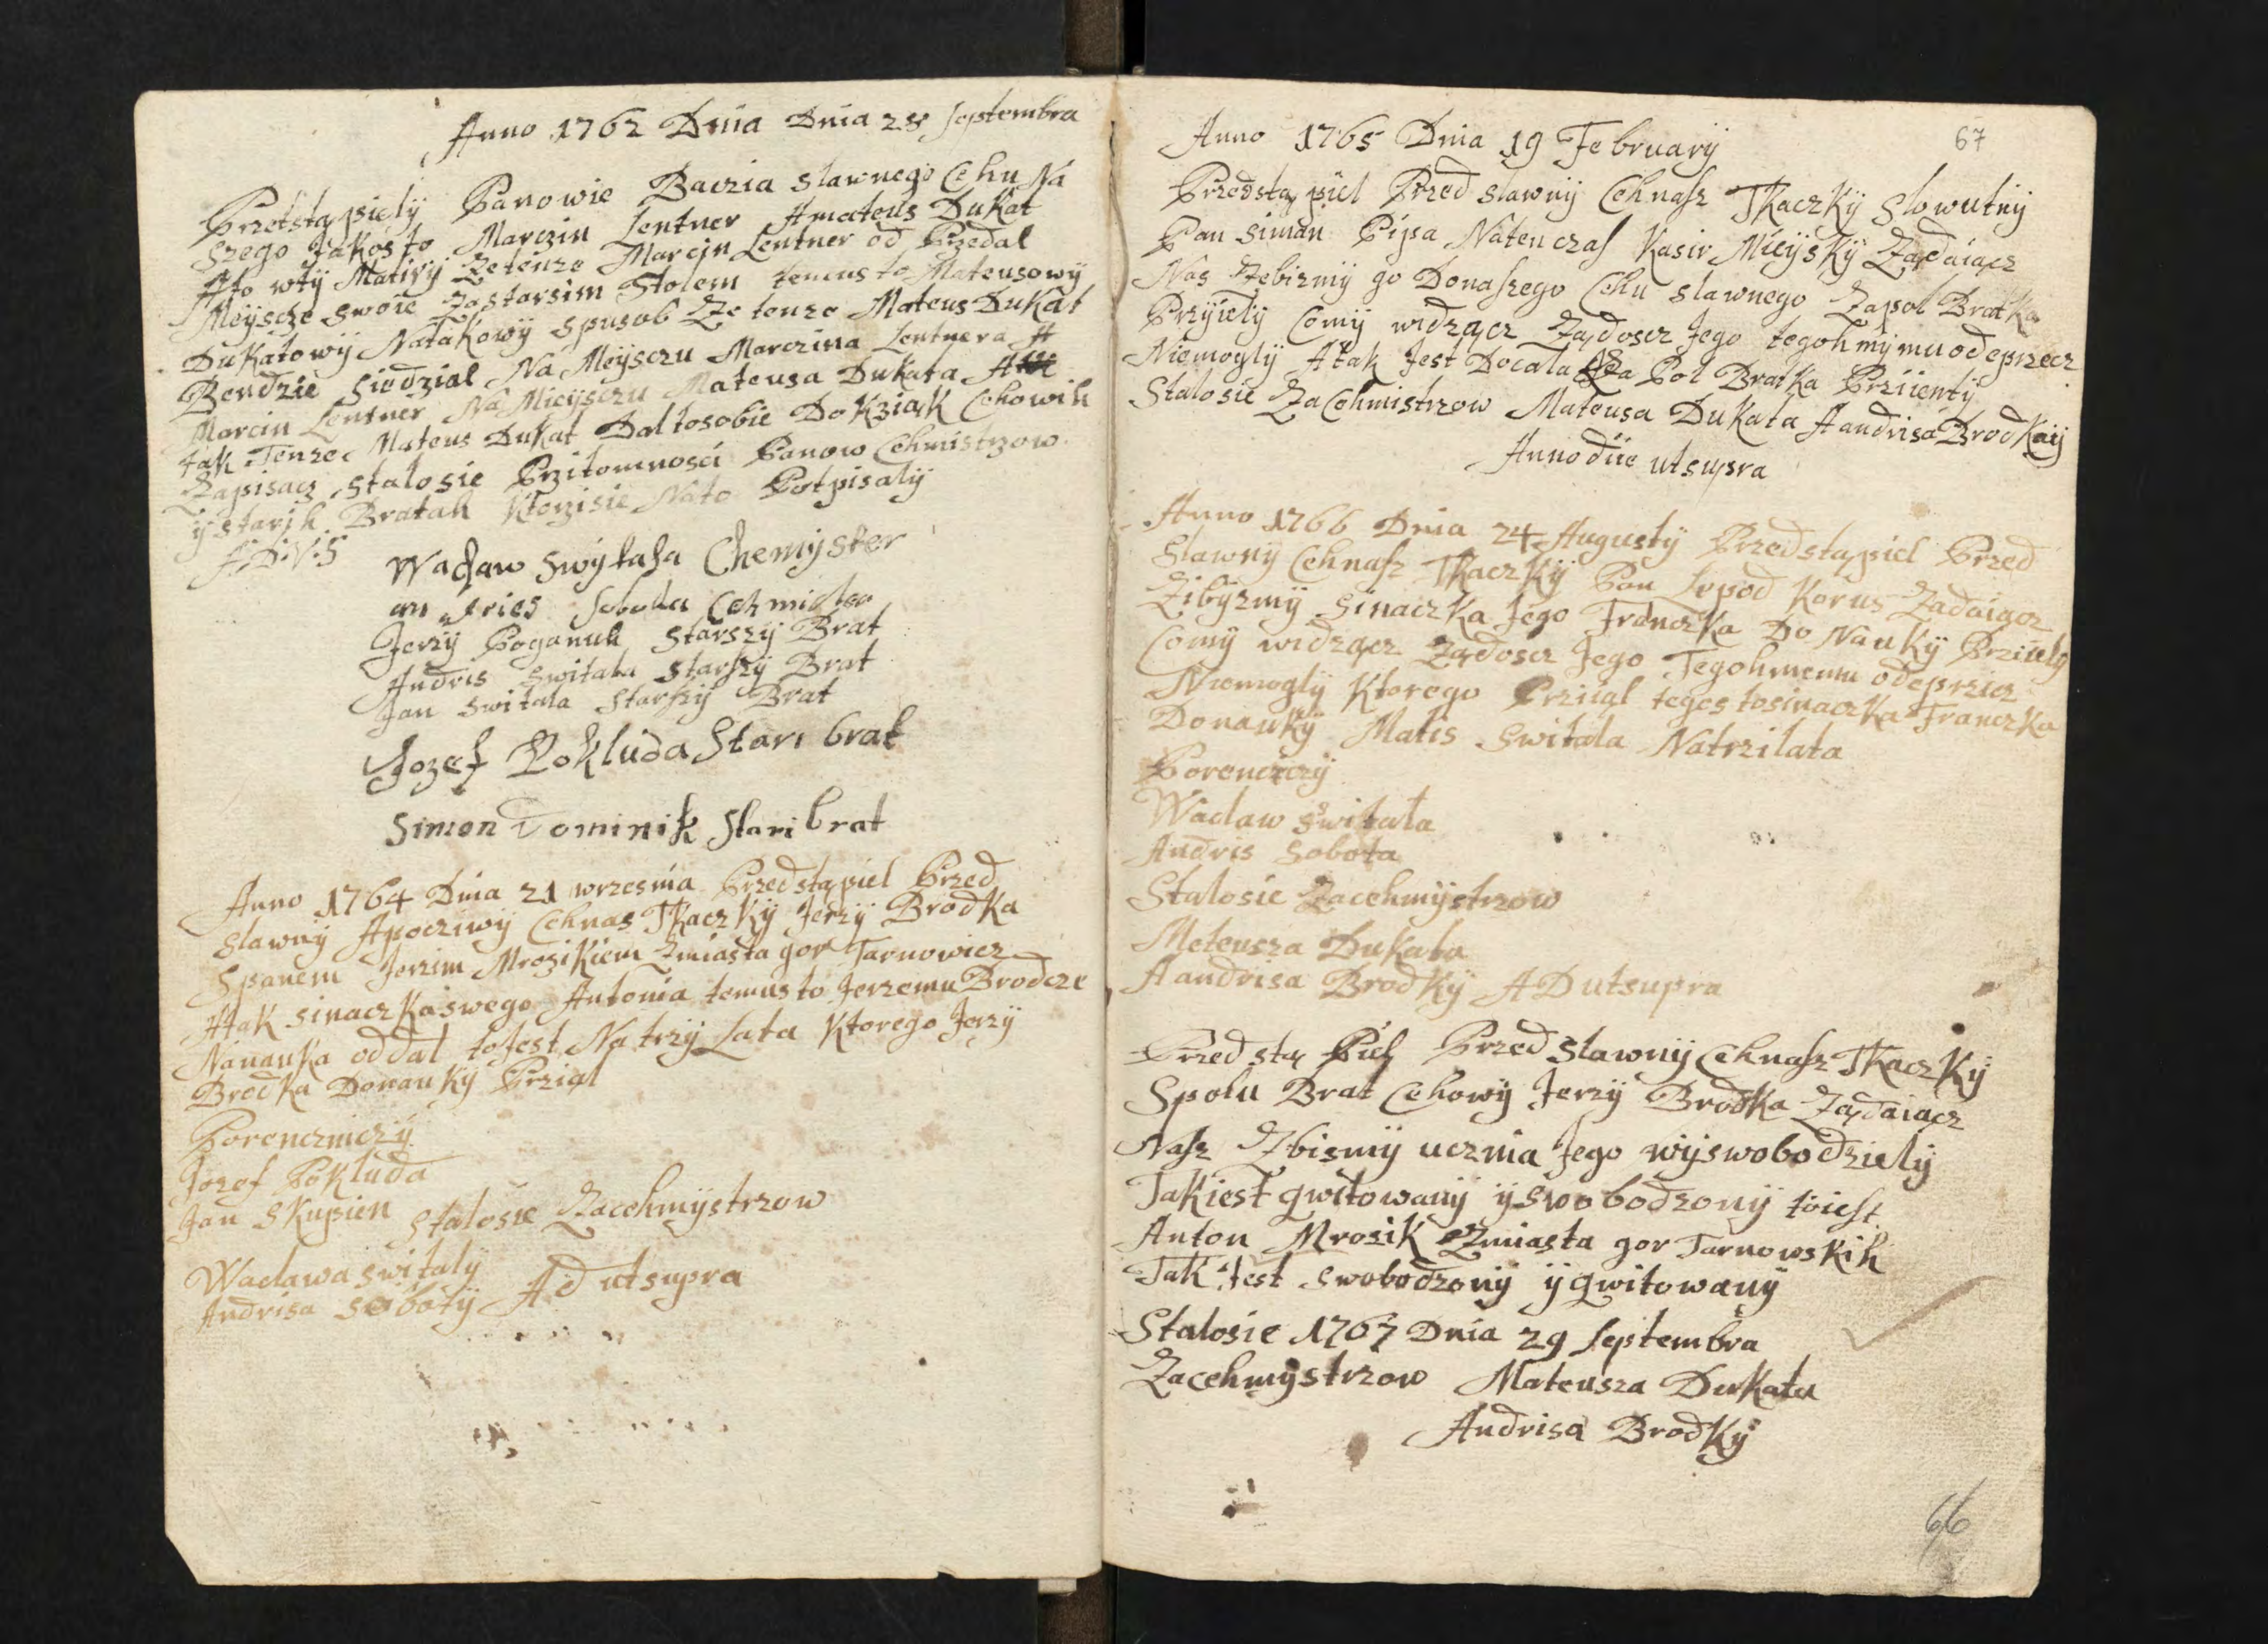 Anno 1762 Dnia Dnia 28 Septembra
Przetstąpielÿ Panowie Baczia slawnego Cehu Na
szego Jakosto Marczin Lentner Amateus Dukat
Ato wtÿ Matirÿ Zetenze Marcin Lentner od Przedal
Meÿscze swoie Zastarsim Stolem temusto Mateusowÿ
Dukatowÿ Natakowÿ spusob Ze tenze Mateus Dukat
Bendzie siedzial Na Meÿsczu Marczina Lentnera A
Marcin Lentner Na Mieÿsczu Mateusa Dukata
Jak Tenze Mateus Dukat Daltosobie Do Kziąk Cehowih
Zapisacz stalosie Przitomnosci Panow Cehmistrzow
ÿ starih Bratah Ktorzisie Nato Potpisalÿ
A:D:V:S
Wacław Swÿtala Chemÿster
an dries Sobota Cehmister
Jerzÿ Poganuh starszÿ Brat
Andris Switala starszÿ Brat
Jan switala starszÿ Brat
Jozef Pokluda Stari brat
Simon Dominik Stari brat
Anno 1764 Dnia 21 wrzesnia Przedstąpiel Przed
slawnÿ Apocziwÿ Cehnas Tkaczkÿ Jerzÿ Brodka
Spanem Jerzim Mrozikiem Zmiasta gor Tarnowicz
Atak sinaczka swego Antonia temusto Jerzemu Brodcze
Nanauka oddal tojest Na trzÿ Lata Ktorego Jerzÿ
Brodka Donaukÿ Prziąl
Porenczniczÿ
Jozef Pokluda
Jan Skupien
Stalosie Zacehmÿstrzow
Waclawa switalÿ
Andrisa sobotÿ AD utsupra
67
Anno 1765 Dnia 19 Februarÿ
Przedstąpiel Przed slawnÿ Cehnasz Tkaczkÿ slowutnÿ
Pan siman Pipa Natenczas Kasir Mieÿskÿ Ządaiącz
Nas Zebizmÿ go Donaszego Cehu slawnego Zapol Bratka
Przÿielÿ Comÿ widzącz Ządoscz Jego tegohmÿmu odeprzecz
Niemoglÿ Atak Jest Docala Za Pol Bratka Prziientÿ
Stalosie Zacehmistrzow Mateusa Dukata Aandrisa Brodkaÿ
Anno diie utsupra
Anno 1766 Dnia 24 Augustÿ Przedstąpiel Przed
Slawnÿ Cehnasz Tkaczkÿ Pan Lepod Korus Ządaiącz
Zibÿzmÿ sinaczka Jego Franczka Do Naukÿ Prziielÿ
Comÿ widzącz Ządoscz Jego Tegohmemu odeprzicz
Niemoglÿ Ktorego Prziiąl tegostosinaczka Franczka
Donaukÿ Matis switala Natrzilata
Porenczczÿ
Waclaw switala
Andris sobota
Stalosie Zacehmÿstrzow
Meteusza Dukata
Aandrisa Brodkÿ AD utsupra
Przed Przed slawnÿ Cehnasz Tkaczkÿ
Spolu Brat Cehowÿ Jerzÿ Brodka Ządaiącz
Nasz Zbismÿ ucznia Jego wÿswobodzielÿ
Takiest qwitowanÿ ÿ swobodzonÿ toiest
Anton Mrosik Zmiasta gor Tarnowskih
Tak Jest swobodzonÿ ÿ qwitowanÿ
Stalosie 1767 Dnia 29 Septembra
Zacehmÿstrzow Mateusza Dukata
Andrisa Brodkÿ
66